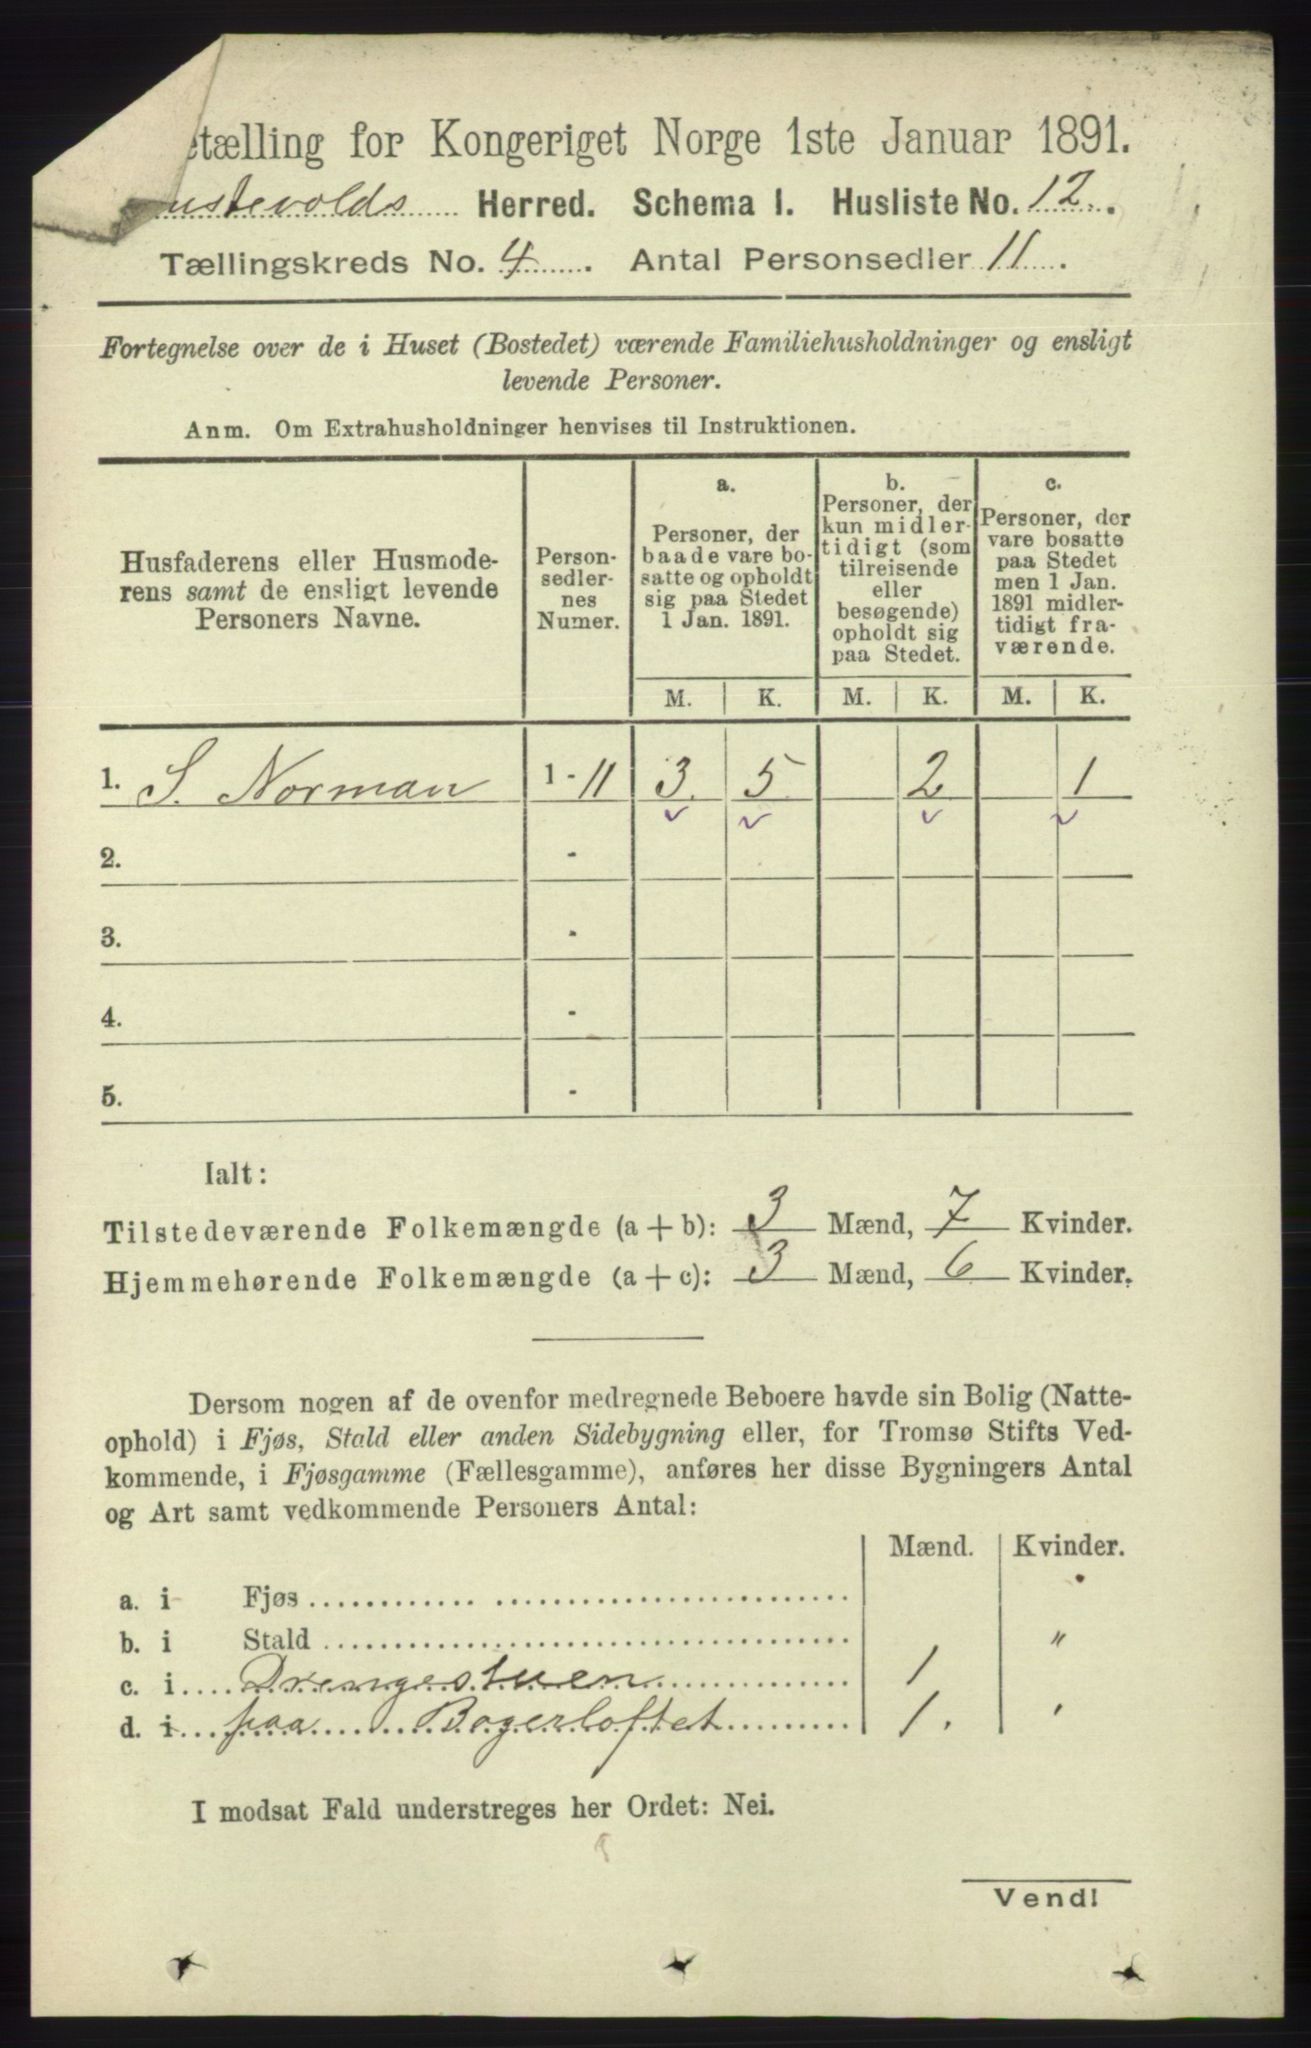 etælling for Kongeriget Norge 1ste Januar 1891.
ustevolds Herred. Schema I. Husliste No. 12.
Tællingskreds No. 4. Antal Personsedler 11.
Fortegnelse over de i Huset (Bostedet) værende Familiehusholdninger og ensligt
levende Personer.
Anm. Om Extrahusholdninger henvises til Instruktionen.
Husfaderens eller Husmode-
rens samt de ensligt levende
Personers Navne.
Person-
sedler-
nes
Numer.
a.
Personer, der
baade vare bo-
satte og opholdt
sig paa Stedet
1 Jan. 1891.
b.
Personer, der
kun midler-
tidigt (som
tilreisende
eller
besøgende)
opholdt sig
paa Stedet.
c.
Personer, der
vare bosatte
paa Stedet
men 1 Jan.
1891 midler-
tidigt fra-
værende.
M. K. M. K. M. K.
1. S. Norman 1 - 11 3 5 2 1
2. -
3. -
4. -
5. -
Ialt:
Tilstedeværende Folkemængde (a + b): 3 Mænd, 7 Kvinder.
Hjemmehørende Folkemængde (a + c): 3 Mænd, 6 Kvinder.
Dersom nogen af de ovenfor medregnede Beboere havde sin Bolig (Natte-
ophold) i Fjøs, Stald eller anden Sidebygning eller, for Tromsø Stifts Ved-
kommende, i Fjøsgamme (Fællesgamme), anføres her disse Bygningers Antal
og Art samt vedkommende Personers Antal:
Mænd. Kvinder.
a. i Fjøs
b. i Stald "
c. i Drengestuen 1
d. i paa Bogerloftet 1.
I modsat Fald understreges her Ordet: Nei.
Vend!